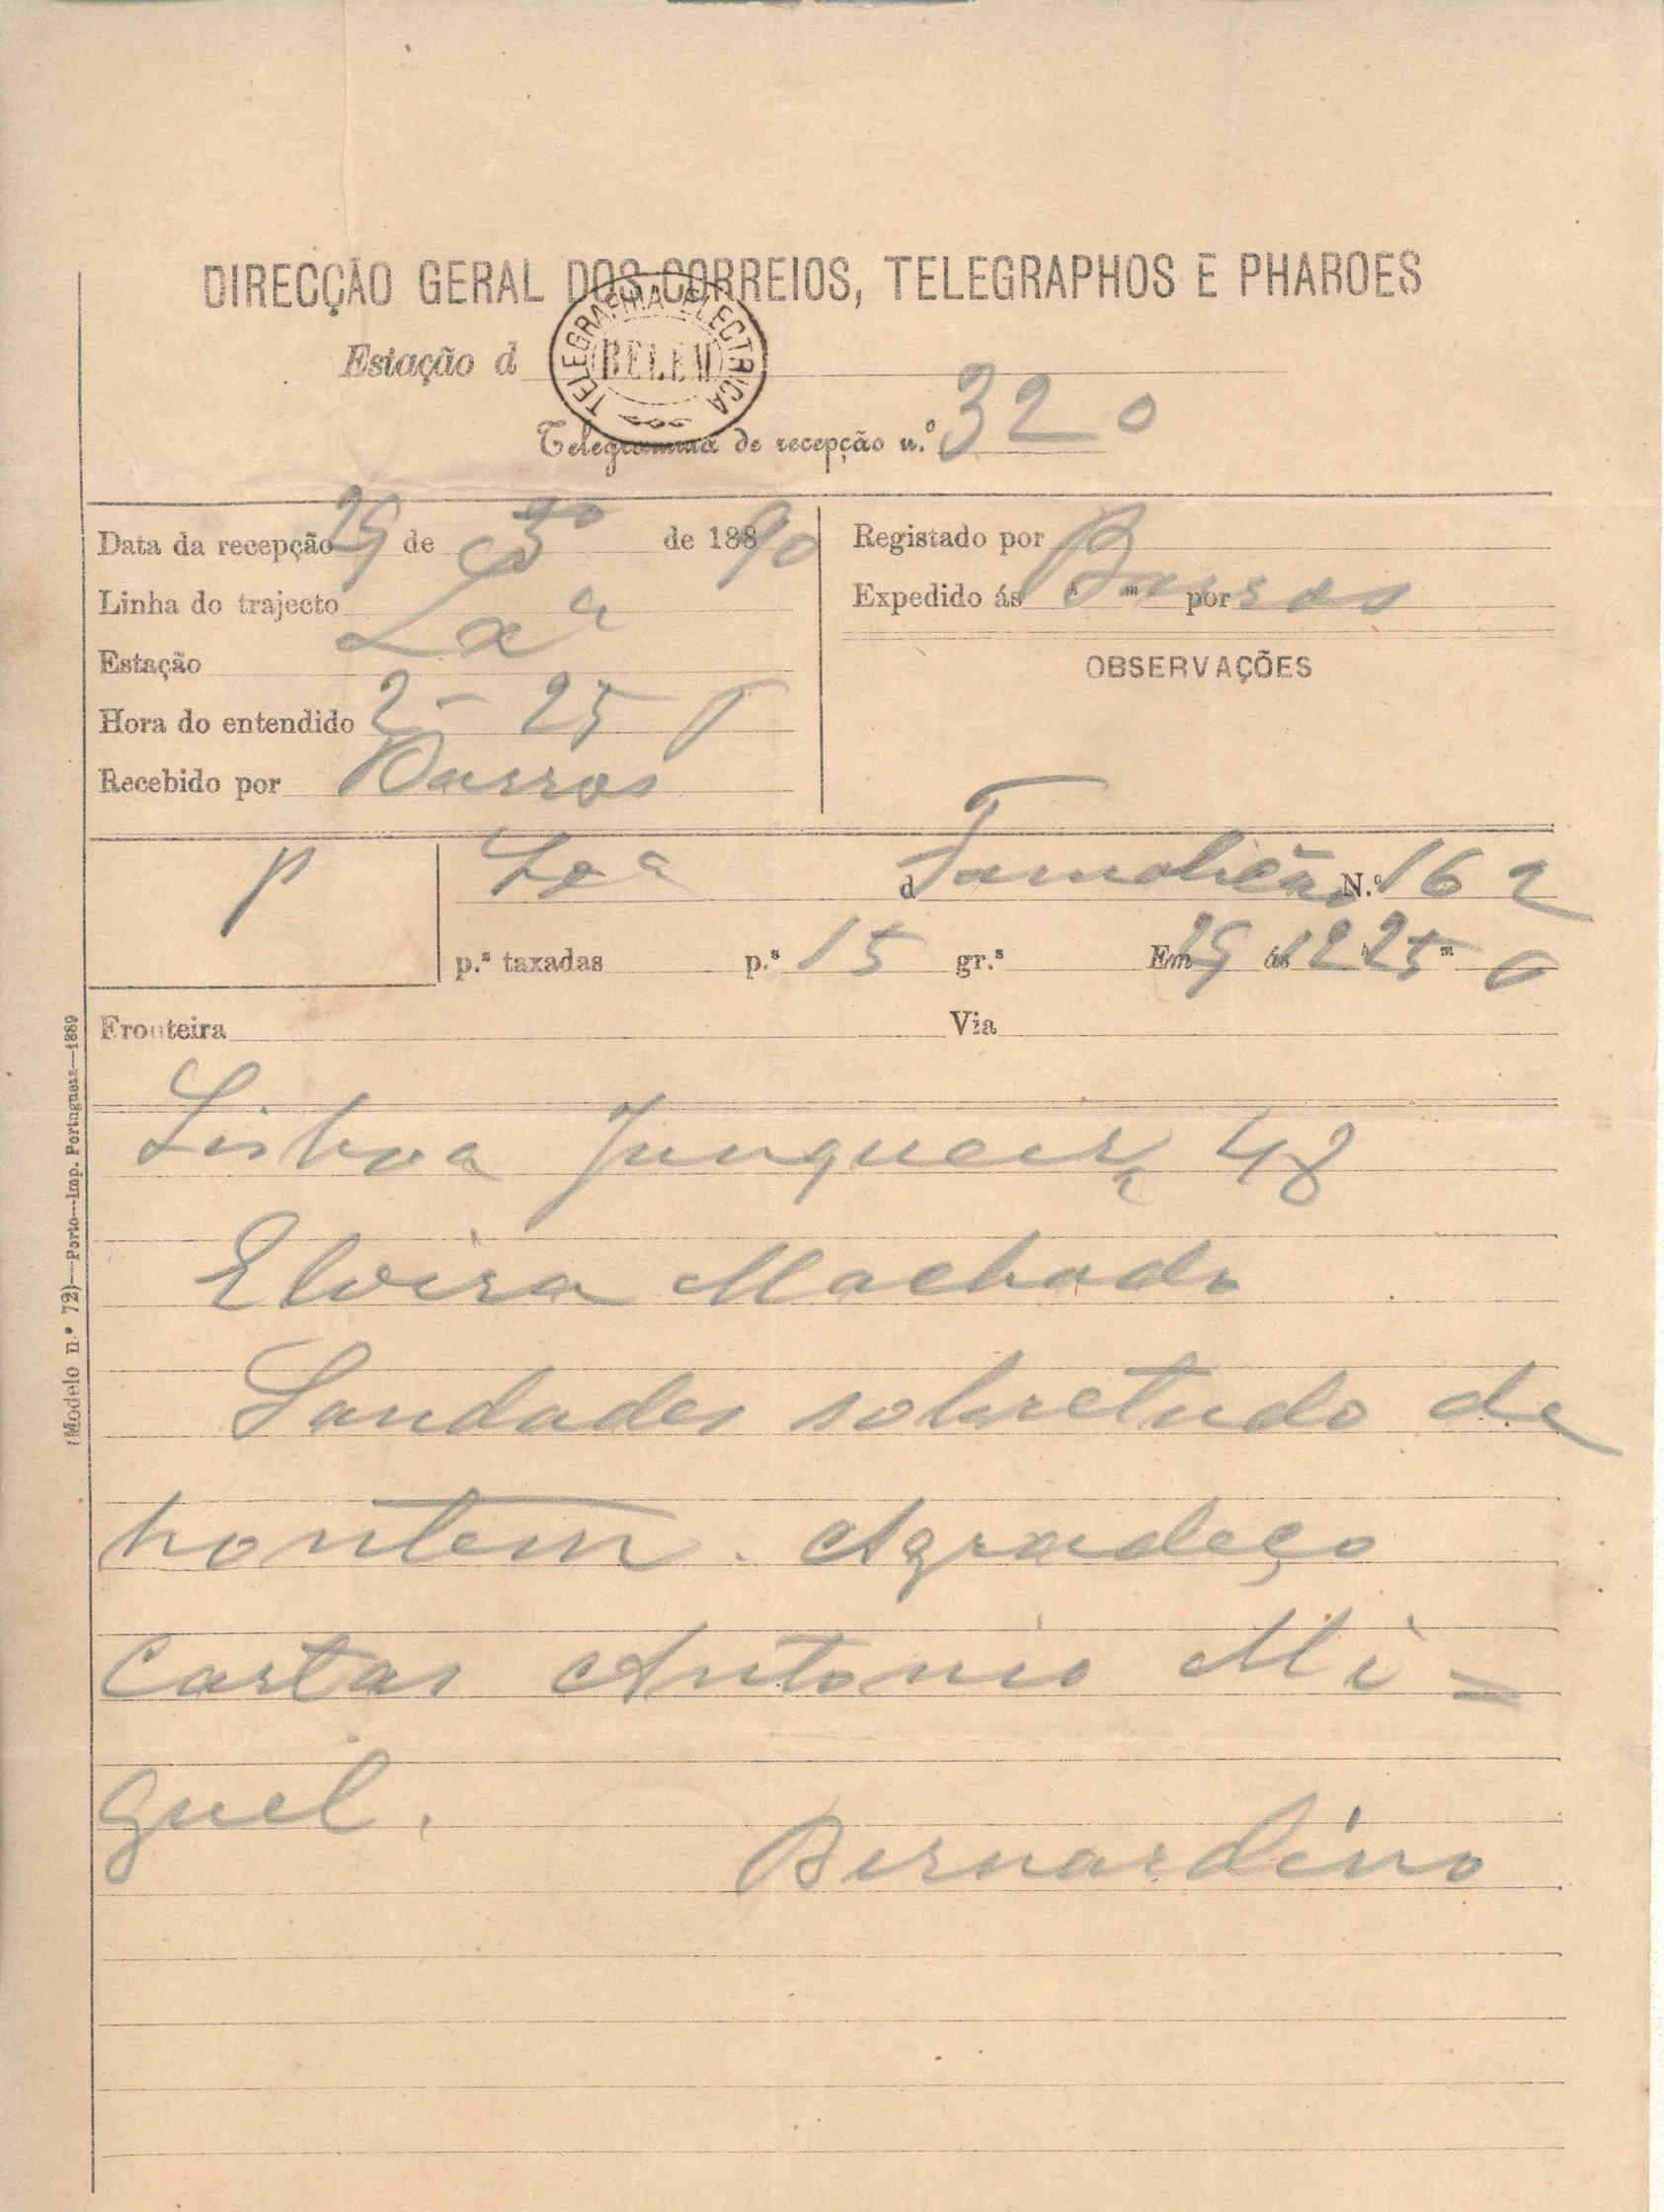 DIRECÇÃO GERAL DOS CORREIOS, TELEGRAPHOS E PHAROES
Estação d
TELEGRAPHIA ELECTRICA
BELEM
Telegramma de recepção n.º 320
Data da recepção 29 de 3º de 188 90
Registado por
Linha do trajecto Lxª
Expedido ás h m por Barros
Estação
OBSERVAÇÕES
Hora do entendido 2-25
Recebido por Barros
P Lxª d Famalicão N.º 162
p.ª taxadas p.ª 15 gr.ª Em 29 ás 12 h 25 m
Fronteira Via
Lisboa Junqueira 48
Elvira Machado
Saudades sobretudo de
hontem. Agradeço
Cartas Antonio Mi=
guel.
Bernardino
(Modelo n.º 72)—Porto—Imp. Portugueza—1889